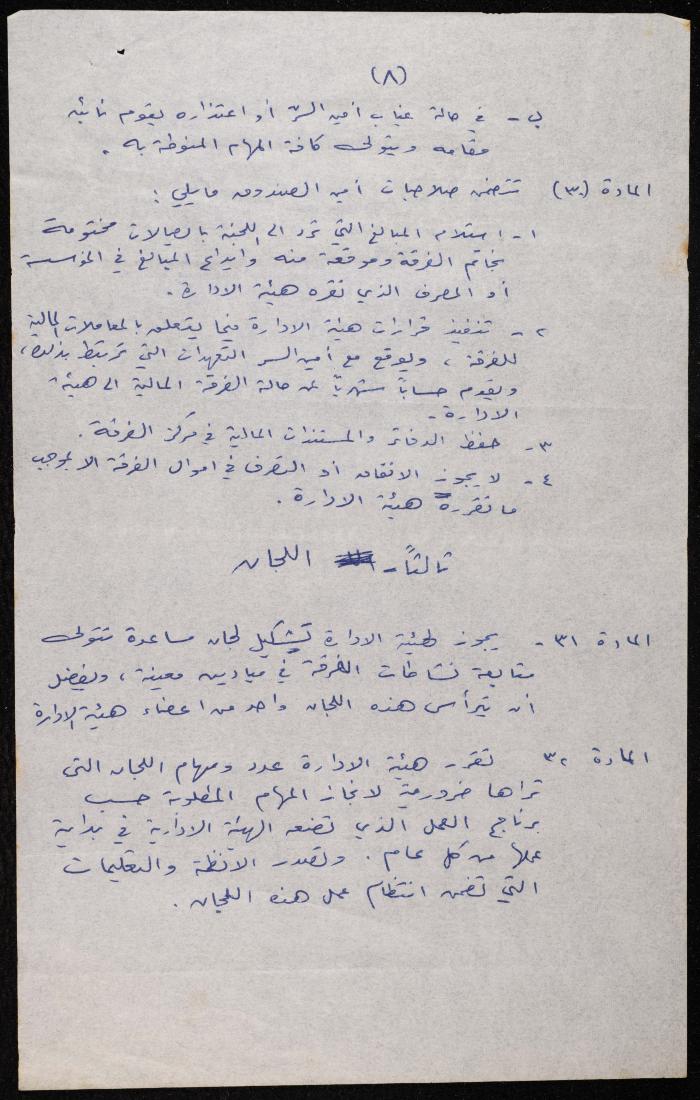 (٨)
ب - في حالة غياب أمين السرّ أو اعتذاره يقوم نائبه
مقامه ويتولى كافة المهام المنوطة به .
المادة (٣٠) تتضمن صلاحيات أمين الصندوق مايلي :
١ - استلام المبالغ التي ترد الى اللجنة بايصالات مختومة
بخاتم الفرقة وموقعة منه وايداع المبالغ في المؤسسة
أو المصرف الذي تقره هيئة الادارة .
٢ - تنفيذ قرارات هيئة الادارة فيما يتعلق بالمعاملات المالية
للفرقة ، ويوقع مع أمين السر التعهدات التي ترتبط بذلك ،
ويقدم حساباً شهرياً عن حالة الفرقة المالية الى هيئة
الادارة .
٣ - حفظ الدفاتر والمستندات المالية في مركز الفرقة .
٤ - لا يجوز الانفاق أو التصرف في اموال الفرقة الا بموجب
ما تقرره هيئة الادارة .
ثالثاً - اللجان
المادة ٣١ - يجوز لهيئة الادارة تشكيل لجان مساعدة تتولى
متابعة نشاطات الفرقة في ميادين معينة ، ويفضل
أن يترأس هذه اللجان واحد من اعضاء هيئة الادارة
المادة ٣٢ تقرر هيئة الادارة عدد ومهام اللجان التي
تراها ضرورية لانجاز المهام المطلوبة حسب
برنامج العمل الذي تضعه الهيئة الادارية في بداية
عملها من كل عام . وتصدر الانظمة والتعليمات
التي تضمن انتظام عمل هذه اللجان .